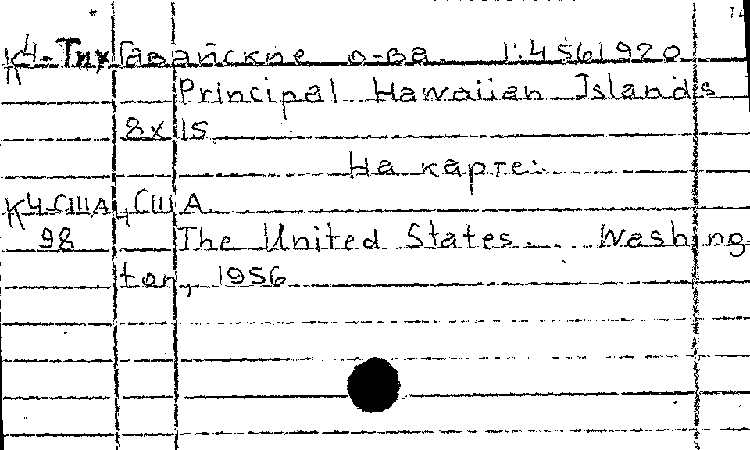 К4-Тих Гавайские о-ва. 1:4561920
Principal Hawaiian Islands
8x15
На карте:
К4-США, США
98 The United States... Washing
ton, 1956